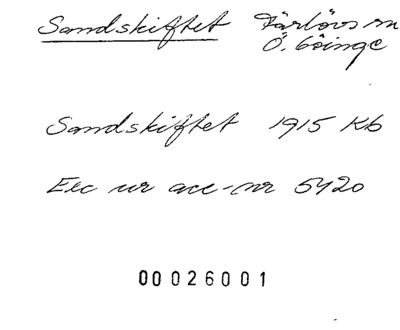 Sandskiftet Färlövs sn
Ö. Göinge
Sandskiftet 1915 Kb
Exc ur acc-nr 5420
00026001